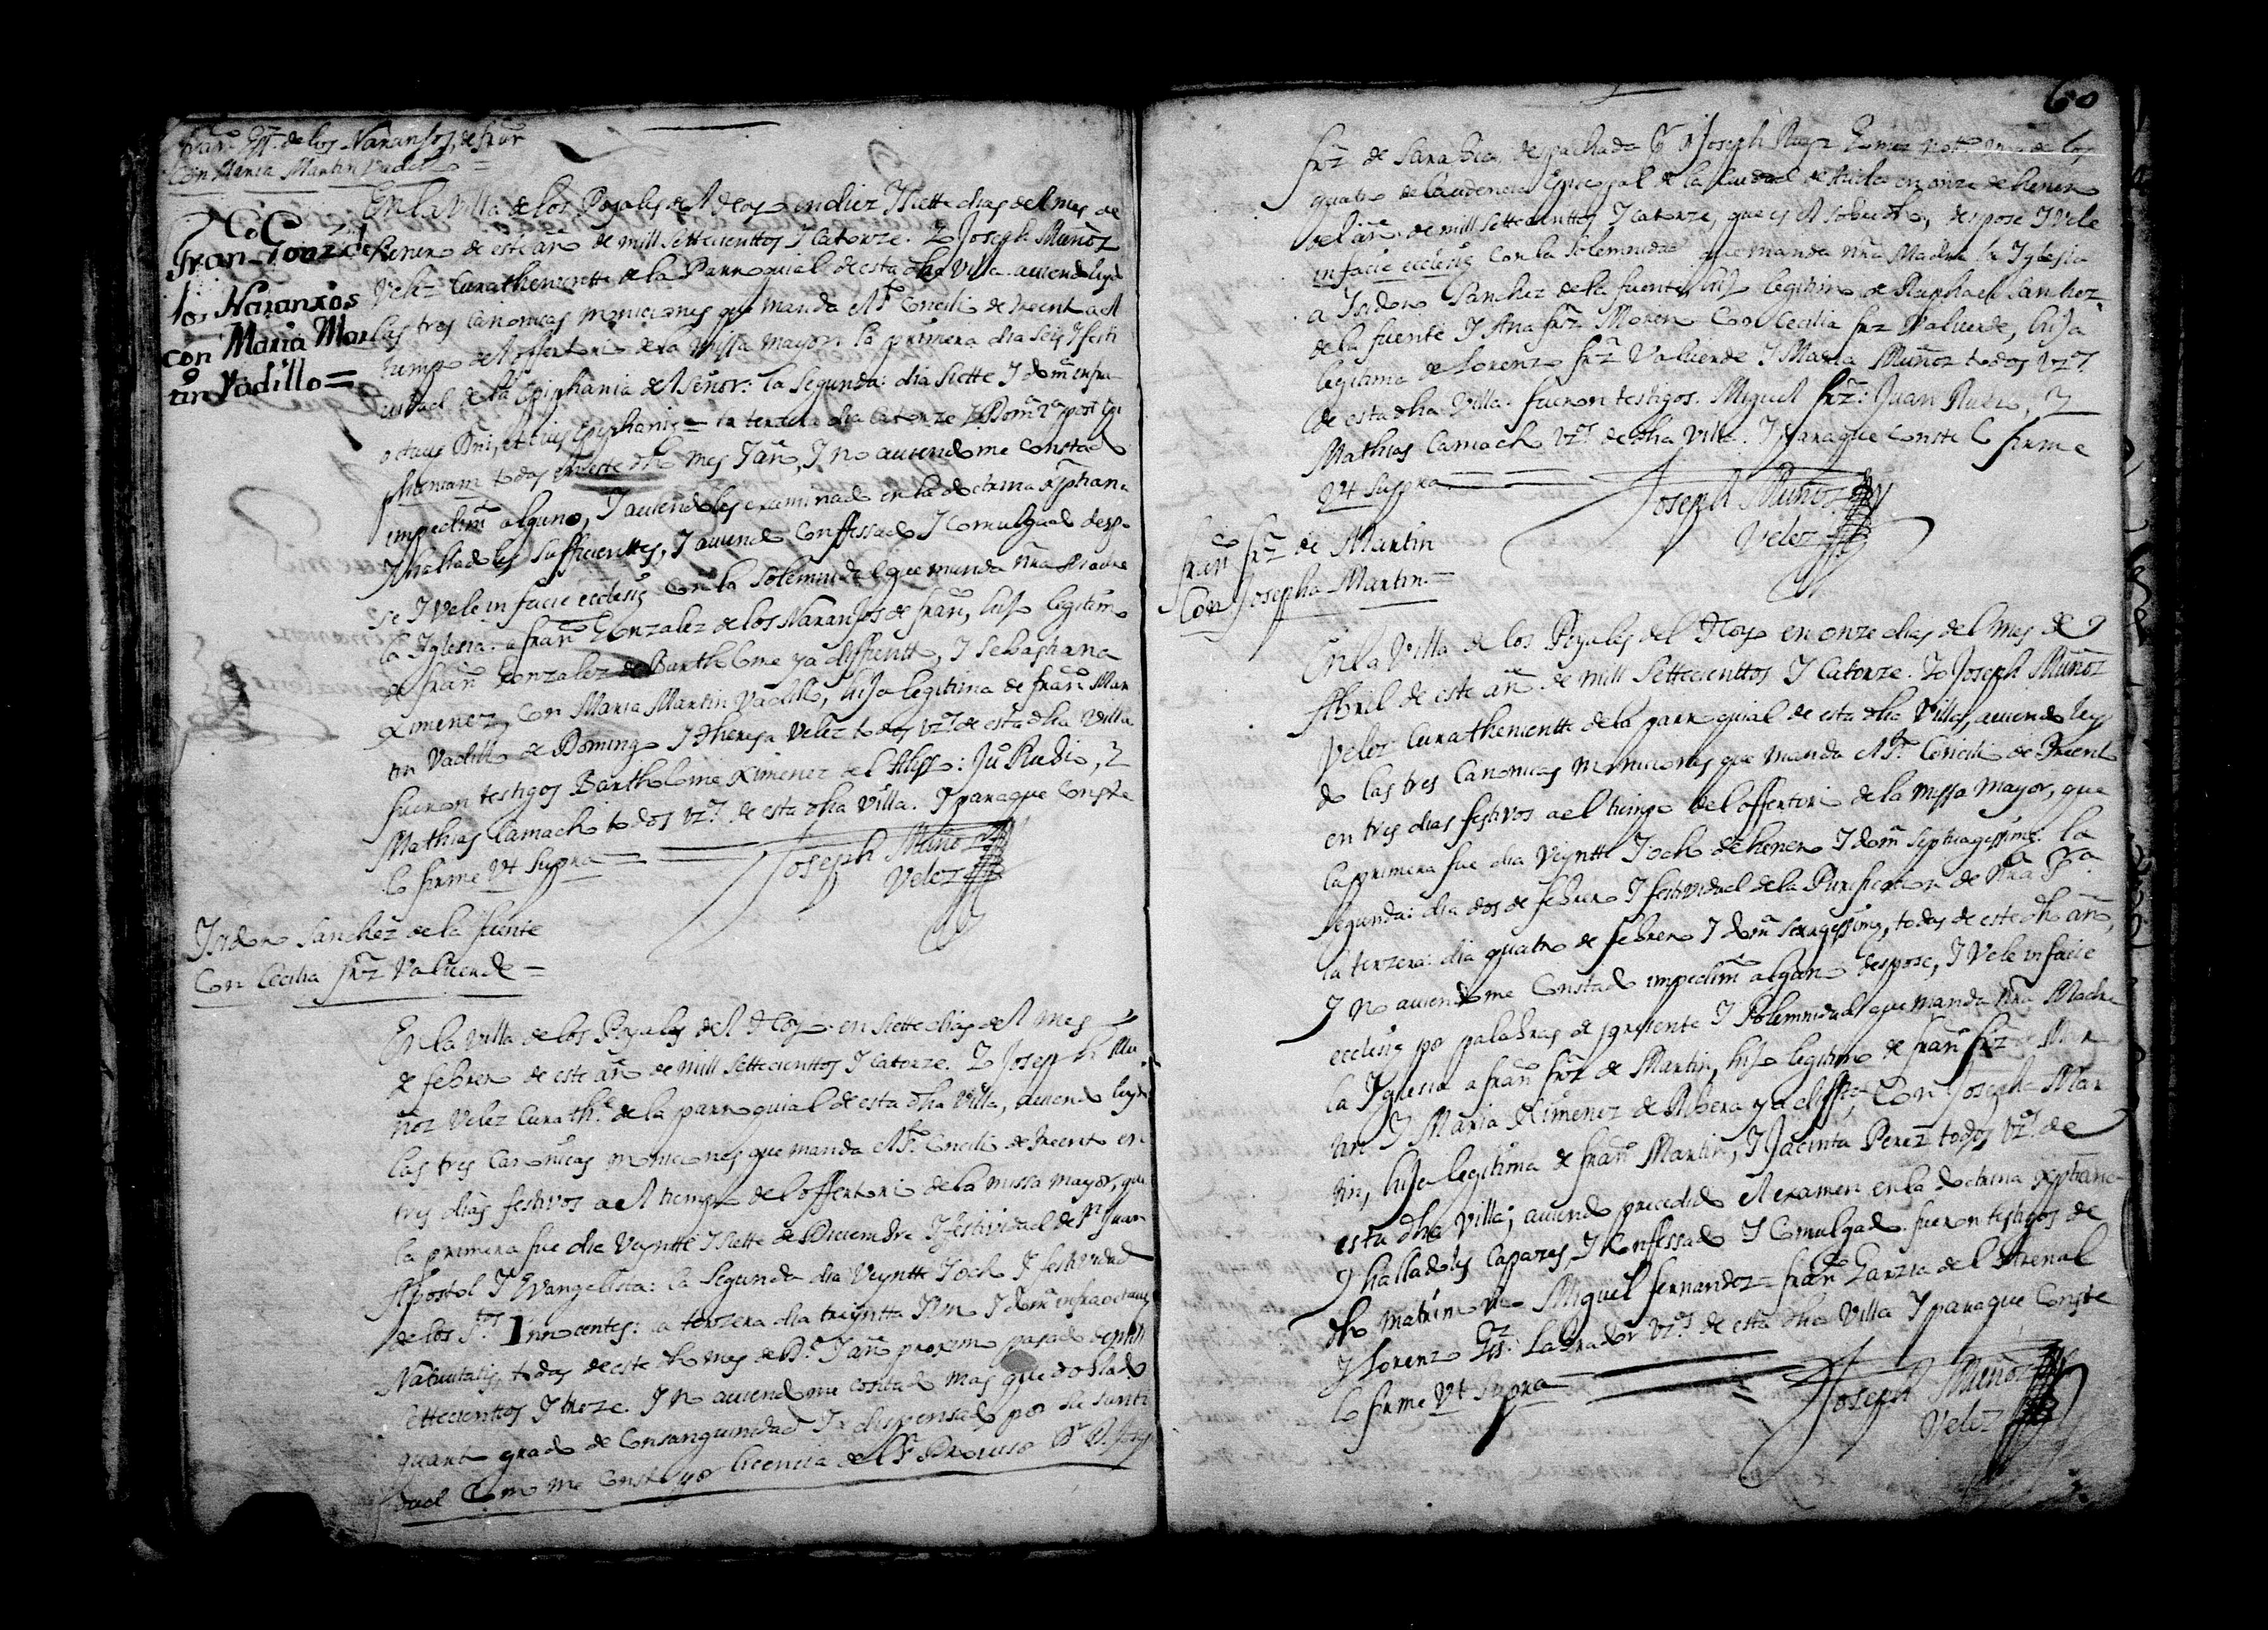 fran.co Gz. de los Naranjos, de fran.co
Con Maria Martin Vadillo =
Fran.co Gonz. de
los Naranxos
con Maria Mar
tin Vadillo =
En la Villa de los Poyales del Hoyo en diez I siette dias del mes de
henero de este año de mill settecienttos I catorze. Yo Joseph Muñoz
Velez Curathenientte de la Parroquial de esta dha Villa auiendo leydo
las tres Canonicas moniciones que manda el S.to Concilio de trento a el
tiempo del offertorio de la Missa mayor: la primera dia seis I festi
uidad de la Epiphania del Señor: la segunda: dia siette I dom.ca infra
octaua Dni, Epiphaniæ = la tercera dia catorze I Dom.ca 2.a post Epi
phaniam todas en este dho mes I año, I no auiendome constado
impedim.to alguno, I auiendoles examinado en la doctrina xptiana
I halladoles sufficienttes, I auiendo Conffessado I comulgado despo
se I Vele in facie ecclesiæ con la solemnidad que manda nra Madre
la Iglesia: a fran.co Gonzalez de los Naranjos de fran.co, hijo legitimo
de fran.co Gonzalez de Bartholome ya diffuntto, I Sebastiana
Ximenez, con Maria Martin Vadillo, hija legitima de fran.co Mar
tin Vadillo de Domingo I Theresa Velez todos vz.os de esta dha Villa
fueron testigos Bartholome Ximenez del Alisso: Ju.o Rubio, I
Mathias Camacho todos vz.os de esta dha Villa. I para que Conste
lo firme Vt supra =
Joseph Muñoz
Velez
Isidoro Sanchez de la fuente
Con Cecilia frz Valuerde =
En la Villa de los Poyales del Hoyo en siette dias del mes
de febrero de este año de mill settecienttos I catorze. Yo Joseph Mu
ñoz Velez Curath.e de la parroquial de esta dha Villa, auiendo leydo
las tres Canonicas moniciones que manda el S.to Concilio de trento en
tres dias festivos a el tiempo del offertorio de la missa mayor, que
la primera fue dia Veyntte I siette de Diciembre I festividad de S.n Juan
Apostol I Evangelista: la segunda dia Veyntte I ocho I festividad
de los S.tos Innocentes: la terzera dia treyntta I un I dom.ca infraoctaua
Natiuitatis, todas de este dho mes de D.e I año proximo pasado de mill
settecienttos I treze. I no auiendome constado mas que doblado
quarto grado de Consanguinidad I dispensado por su santi
dad como me consto por licencia del S.r Prouisor D.r D. Joseph
60
frz de Sarabia, despachada p.r Joseph Ruyz Gomez not.o uno de los
quatro de la audiencia Episcopal de la Ciudad de Auila en onze de henero
del año de mill settecienttos I catorze, que es el sobredho, despose I Vele
in facie ecclesiæ con la solemnidad que manda nra Madre la Iglesia
a Isidoro Sanchez de la fuente, hijo legitimo de Raphael Sanchez
de la fuente I Ana frz Moreno Con Cecilia frz Valuerde, hija
legitima de Lorenzo frz Valuerde I Maria Muñoz todos vz.os
de esta dha Villa. fueron testigos. Miguel frz: Juan Rubio, I
Mathias Camacho vz.os de dha Villa. I para que Conste lo firme
Vt supra
Joseph Muñoz
Velez
fran.co frz de Martin
Con Josepha Martin =
En la Villa de los Poyales del Hoyo en onze dias del Mes de
Abril de este año de mill settecienttos I catorze. Yo Joseph Muñoz
Velez Curathenientte de la parroquial de esta dha Villa, auiendo leydo
do las tres Canonicas moniciones que manda el S.to Concilio de Trento
en tres dias festivos a el tiempo del offertorio de la missa mayor, que
la primera fue dia Veyntte I ocho de henero I dom.ca septuagessima. la
segunda: dia dos de febrero I festividad de la Purificacion de Nra S.ra
la terzera: dia quatro de febrero I dom.ca sexagessima, todas de este dho año,
I no auiendome Constado impedim.to alguno despose, I Vele in facie
ecclesiæ por palabras de presente I solemnidad que manda nra Madre
la Iglesia a fran.co frz de Martin, hijo legitimo de fran.co frz Mar
tin I Maria Ximenez de Ribera ya diff.ta, Con Josepha Mar
tin, hija legitima de fran.co Martin, I Jacinta Perez todos vz.os de
esta dha Villa; auiendo precedido el examen en la doctrina xptiana
I halladoles capazes, I Conffessado I Comulgado. fueron testigos de
dho matrimonio Miguel fernandez = fran.co Garzia del Arenal
I Lorenzo Gz. Labrador vz.os de esta dha Villa I para que Conste
lo firme Vt supra
Joseph Muñoz
Velez